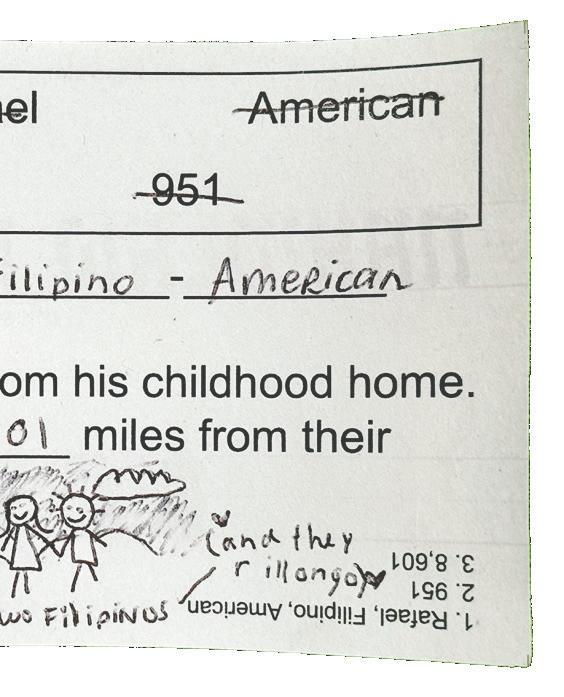 el American
951
Filipino - American
om his childhood home.
01 miles from their
(and they
r illongo)
wo Filipinos
1. Rafael, Filipino, American
2. 951
3. 8,601